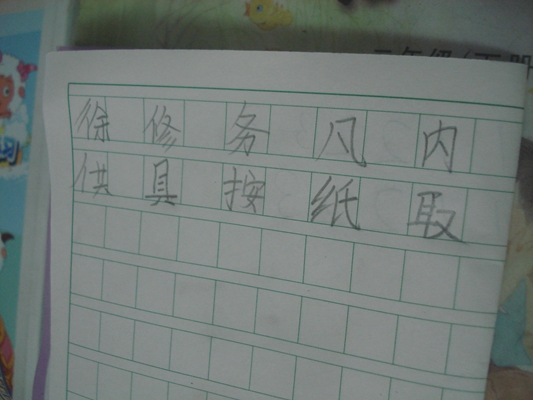 徐修务凡内
供具按纸取